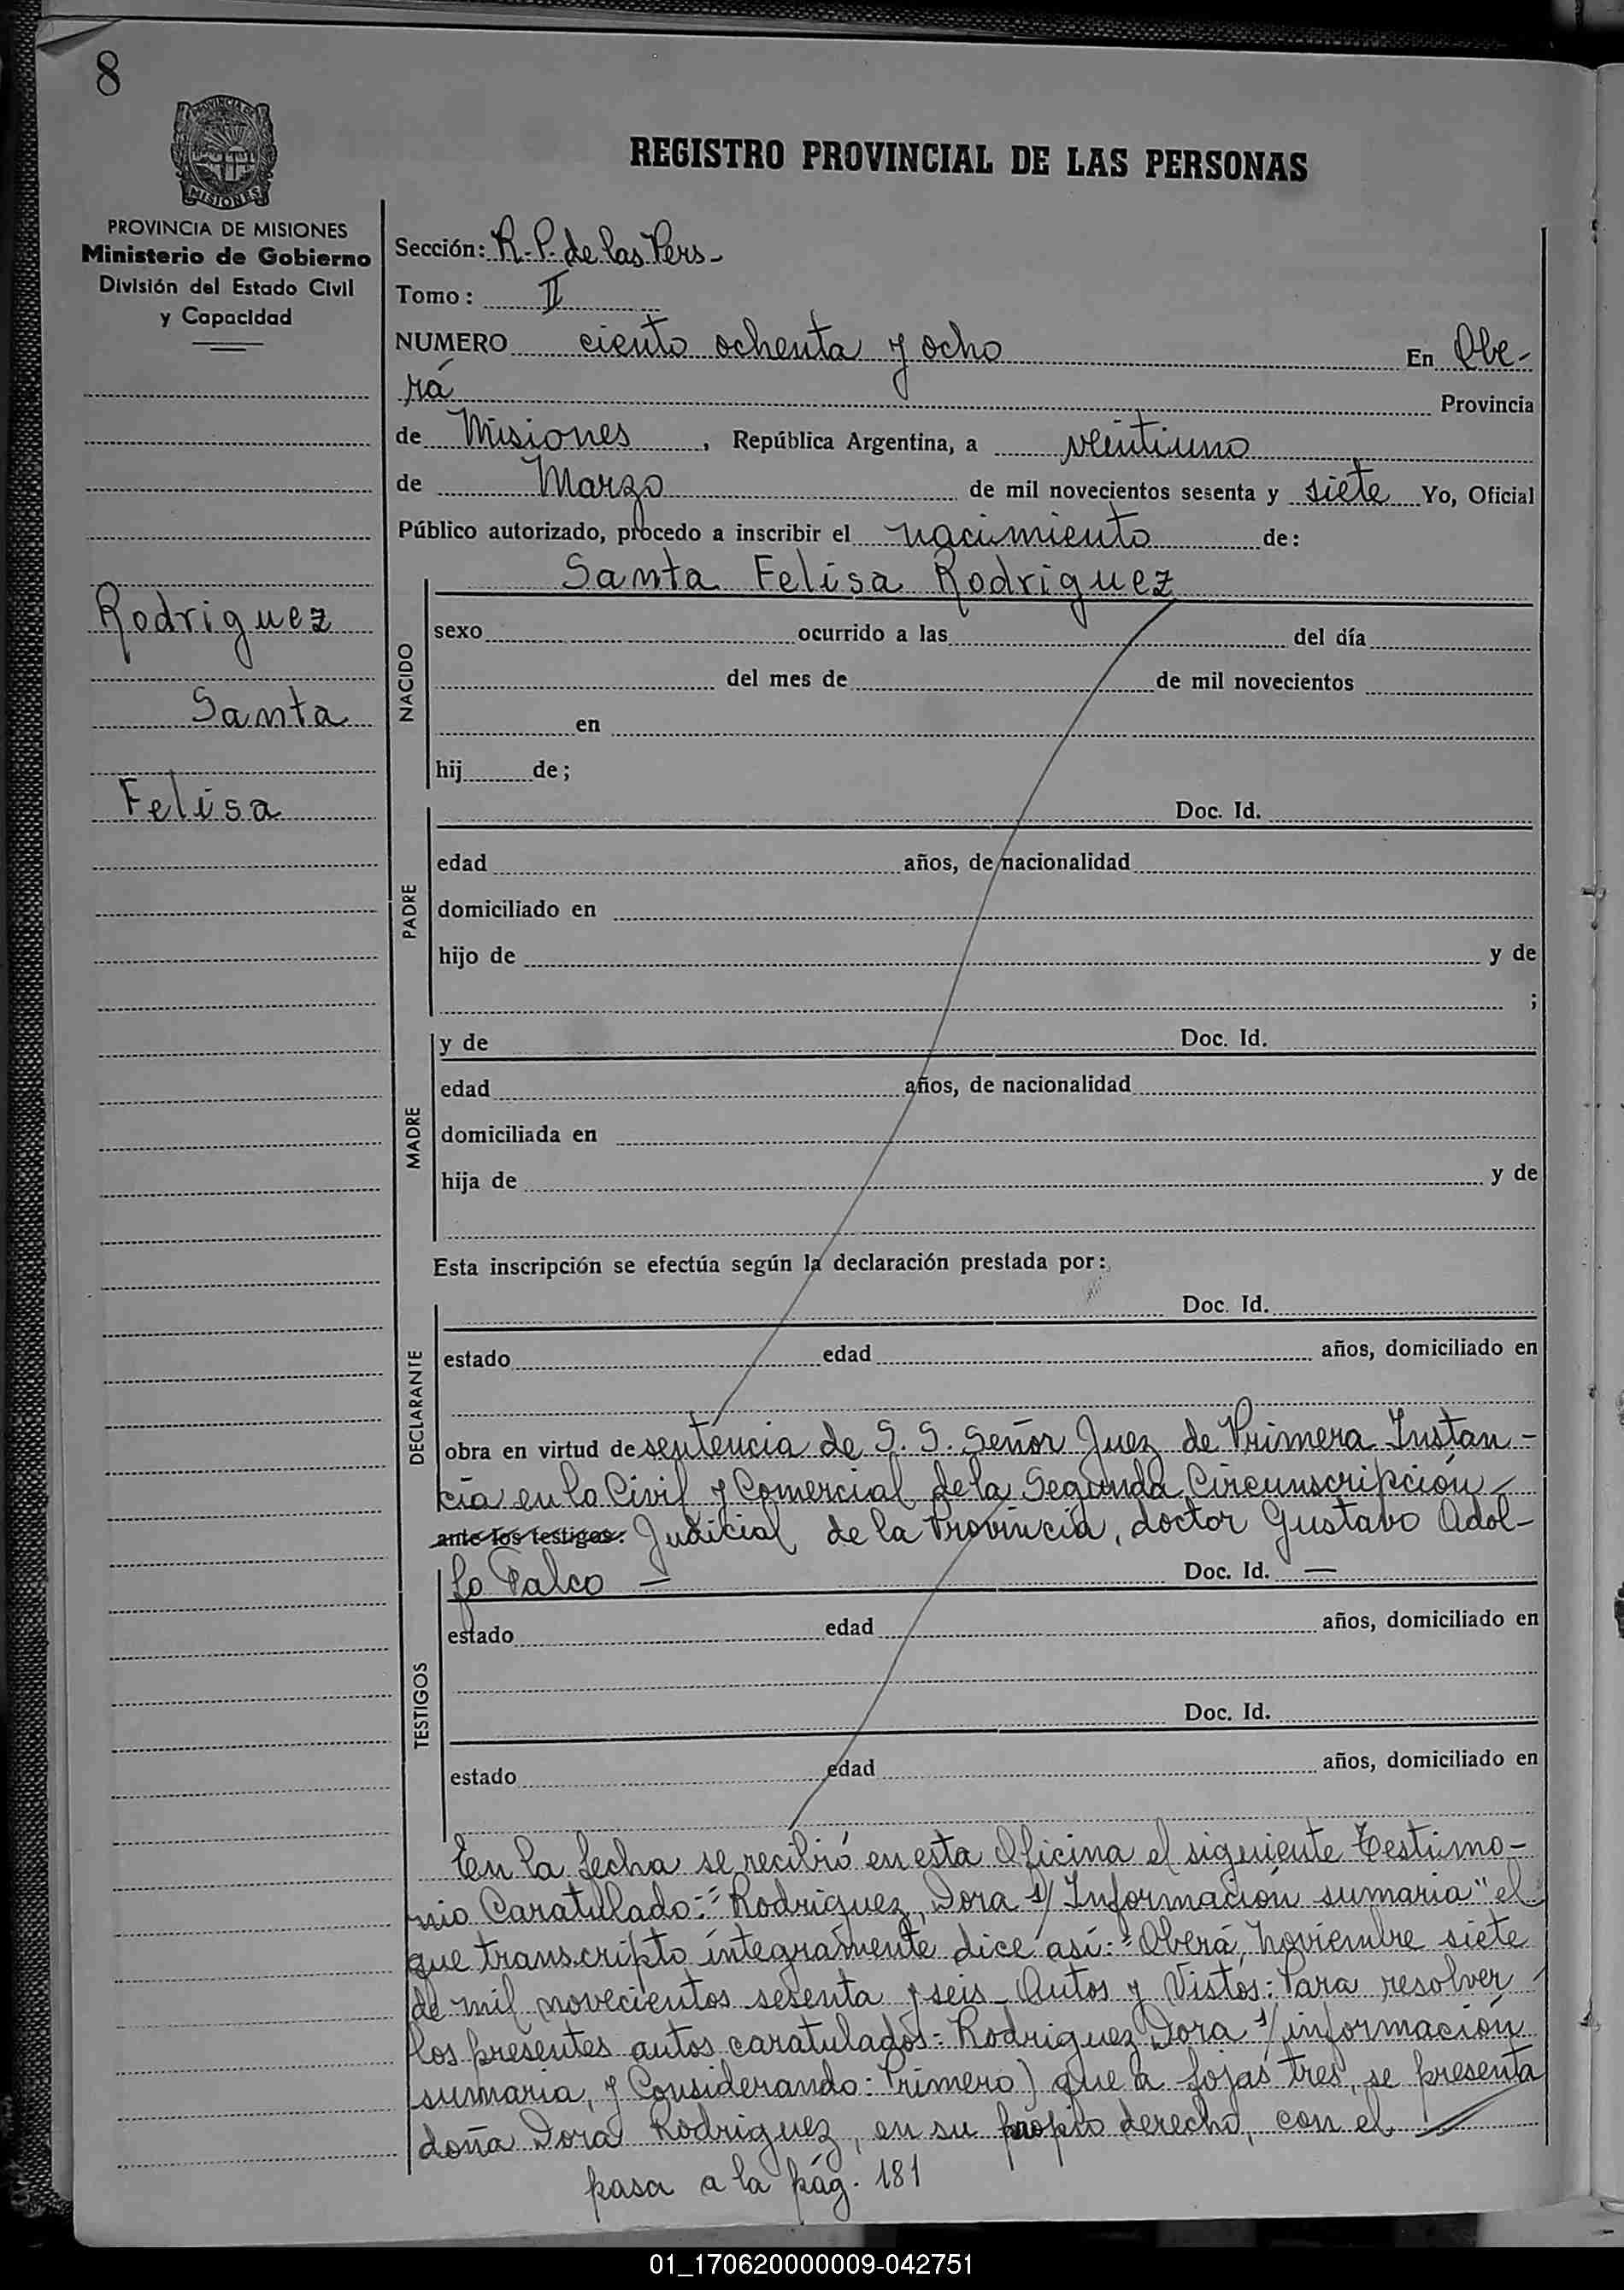 8
PROVINCIA DE
MISIONES
PROVINCIA DE MISIONES
Ministerio de Gobierno
División del Estado Civil
y Capacidad
REGISTRO PROVINCIAL DE LAS PERSONAS
Sección: R. P. de las Pers-
Tomo: II
NUMERO ciento ochenta y ocho En Obe-
rá Provincia
de Misiones, República Argentina, a veintiuno
de Marzo de mil novecientos sesenta y siete Yo, Oficial
Público autorizado, procedo a inscribir el nacimiento de:
Santa Felisa Rodriguez
Rodriguez
Santa
Felisa
NACIDO
sexo ocurrido a las del día
del mes de de mil novecientos
en
hij de;
PADRE
Doc. Id.
edad años, de nacionalidad
domiciliado en
hijo de y de
;
MADRE
y de Doc. Id.
edad años, de nacionalidad
domiciliada en
hija de y de
Esta inscripción se efectúa según la declaración prestada por:
DECLARANTE
Doc. Id.
estado edad años, domiciliado en
obra en virtud de sentencia de S. S. Señor Juez de Primera Instan-
cia en lo Civil y Comercial de la Segunda Circunscripción
ante los testigos: Judicial de la Provincia, doctor Gustavo Adol-
fo Falco — Doc. Id. —
TESTIGOS
estado edad años, domiciliado en
Doc. Id.
estado edad años, domiciliado en
En la fecha se recibió en esta Oficina el siguiente Testimo-
nio Caratulado: "Rodriguez, Dora s/ Información sumaria" el
que transcripto íntegramente dice así: "Oberá, Noviembre siete
de mil novecientos sesenta y seis_ Autos y Vistos: Para resolver
los presentes autos caratulados: Rodriguez Dora s/ información
sumaria, y Considerando: Primero) que a fojas tres, se presenta
doña Dora Rodriguez, en su propio derecho, con el
pasa a la pág. 181
01_170620000009-042751